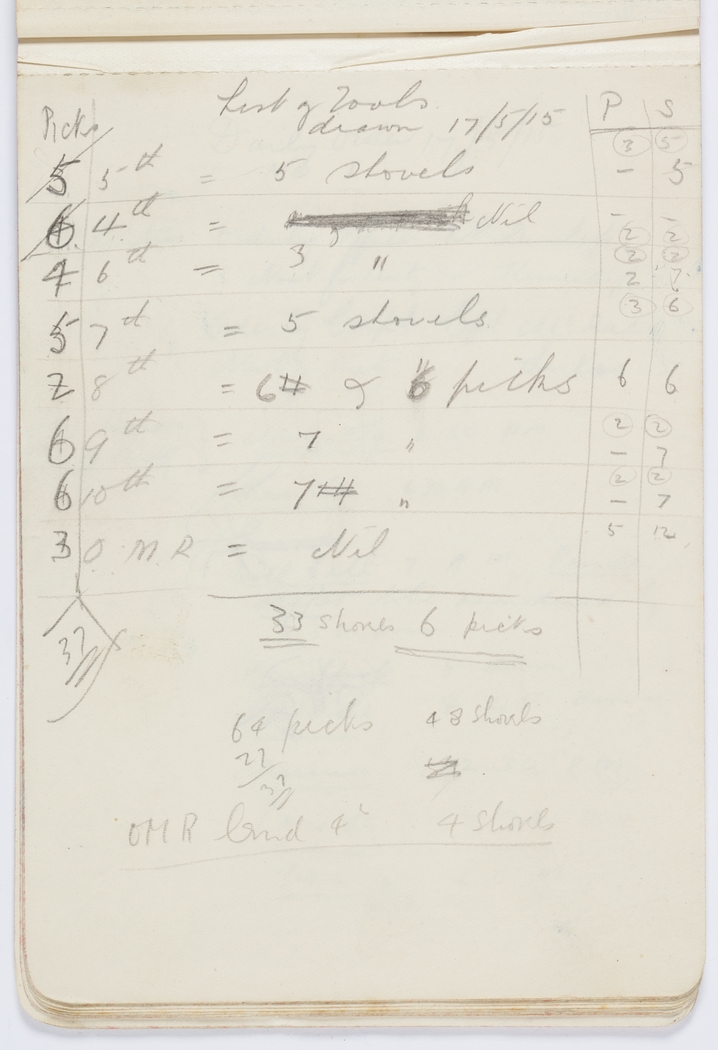 List of Tools P S
Picks drawn 17/5/15
3 5
5 5th = 5 shovels - 5
6 4th = Nil - -
2 2
2 2
4 6th = 3 " 2
3 6
5 7th = 5 shovels
2 8th = 6 & 6 picks 6 6
2 2
6 9th = 7 " - 7
2 2
6 10th = 7 " - 7
3 O.M.R = Nil 5 12
37
33 shovels 6 picks
64 picks 48 shovels
27
37
OMR 4 shovels